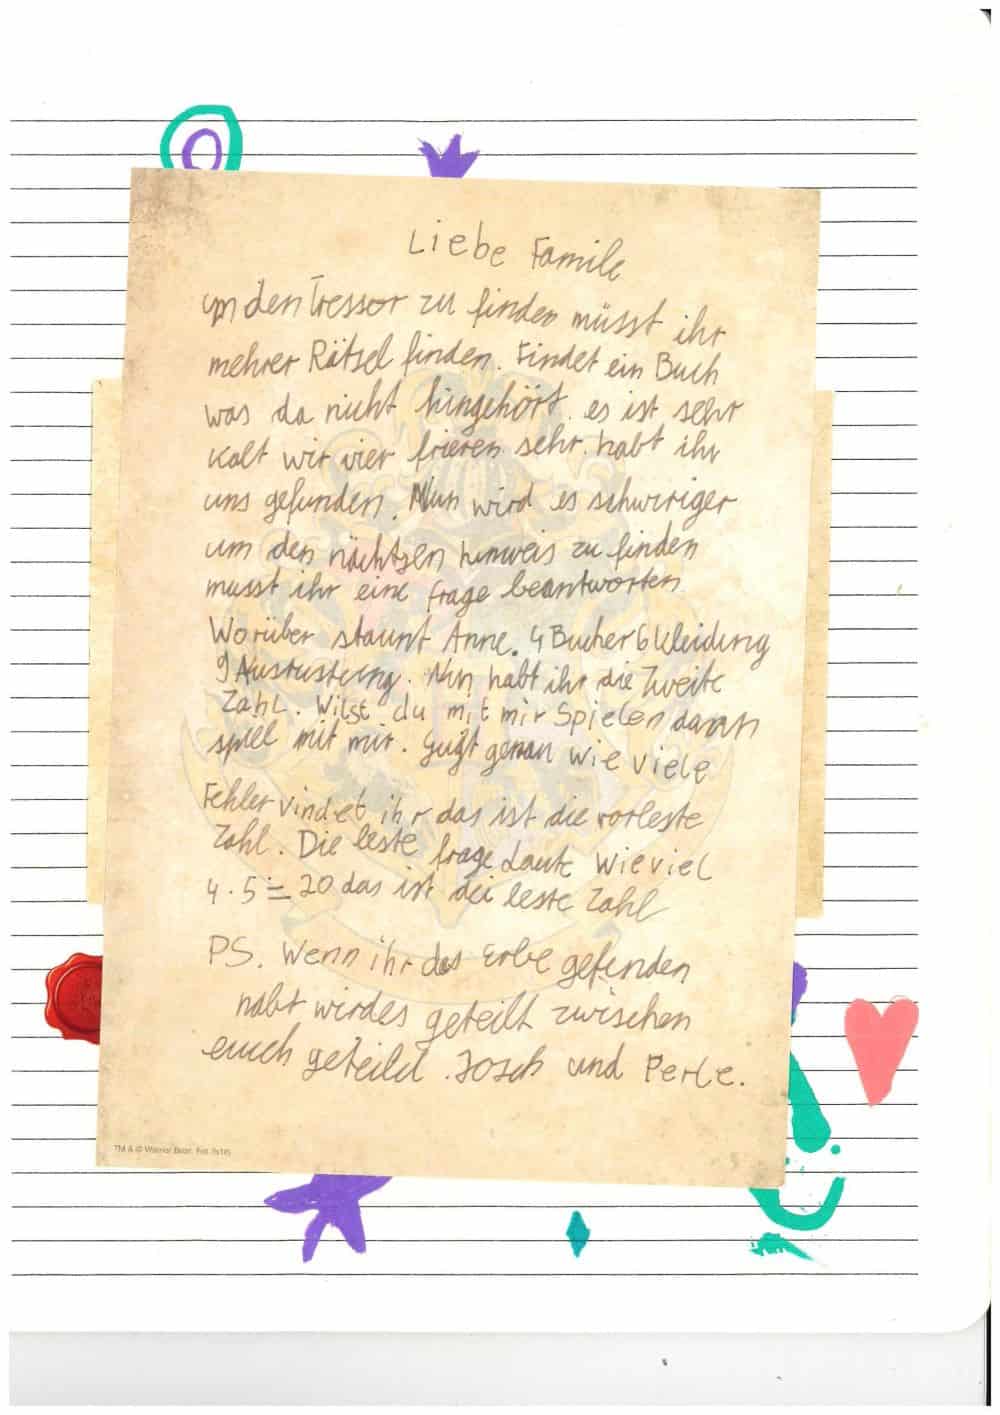 Liebe Famile
um den Tressor zu finden müsst ihr
mehrer Rätsel finden. Findet ein Buch
was da nicht hingehört. es ist sehr
kalt wir vier frieren sehr. habt ihr
uns gefunden. Nun wird es schwriger
um den nächtsen hinweis zu finden
musst ihr eine frage beantworten
Worüber staunt Anne. 4 Bucher 6 Kleidung
9 Ausrustung. Nun habt ihr die Zweite
Zahl. Wilst du mit mir Spielen dann
spiel mit mir. Gugt genau wie viele
Fehler vindet ihr das ist die vorleste
Zahl. Die leste frage Laute wieviel
4 . 5 = 20 das ist dei leste Zahl
PS. Wenn ihr das Erbe gefenden
habt wird es geteilt zwischen
euch geteild. Josch und Perle.